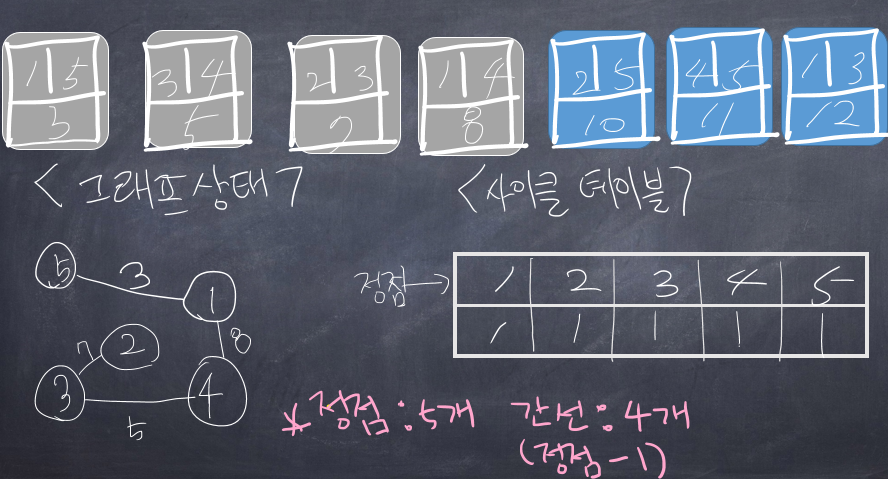 1 5 3 4 2 3 1 4 2 5 4 5 1 3
3 5 7 8 10 11 12
<그래프 상태>
<사이클 테이블>
5 3 1
7 2 8
3 4
5
정점→ 1 2 3 4 5
1 1 1 1 1
*정점:5개 간선:4개
(정점-1)